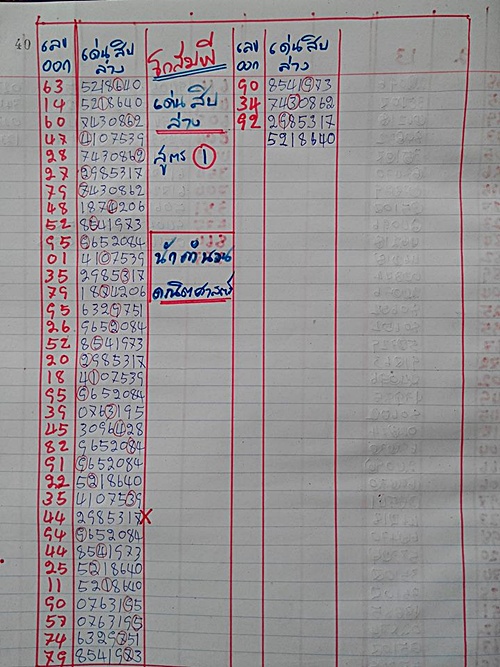 40
เลข เด่นสิบ โกสมพี เลข เด่นสิบ
ออก ล่าง ออก ล่าง
63 5218640 90 8541973
14 5218640 เด่นสิบ 34 7430862
60 7430862 ล่าง 92 2985317
47 4107539 5218640
28 7430862 สูตร 1
27 2985317
79 7430862
48 1874206
52 8541973
95 9652084
01 4107539 น้าคำนวน
35 2985317
79 1874206 คณิตศาสตร์
95 6329751
26 9652084
52 8541973
20 2985317
18 4107539
95 9652084
39 0763195
45 3096428
82 9652084
91 9652084
22 5218640
35 4107539
44 2985317X
94 9652084
44 8541973
25 5218640
11 5218640
90 0763195
57 0763195
74 6329751
79 8541973